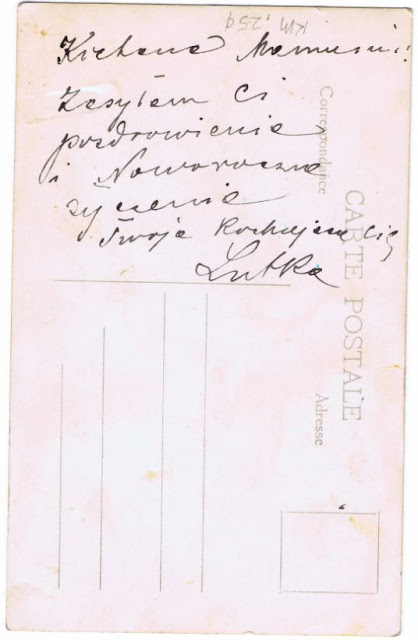 KM. 259
Kochana Mamusiu!
Zesyłam Ci
pozdrowienie
i Noworoczne
życzenie
Twoja kochająca Cię
Lutka
Correspondance
CARTE POSTALE
Adresse